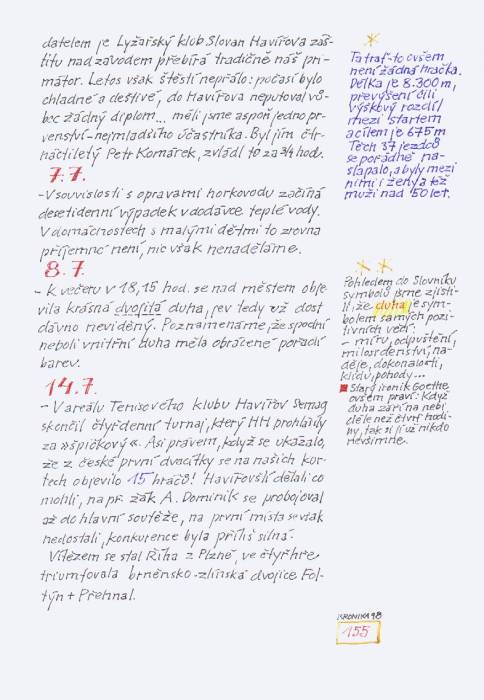 datelem je Lyžařský klub Slovan Havířova záš-
titu nad závodem přebírá tradičně náš pri-
mátor. Letos však štěstí nepřálo: počasí bylo
chladné a deštivé, do Havířova neputoval vů-
bec žádný diplom... měli jsme aspoň jedno pr-
venství – nejmladšího účastníka. Byl jím čtr-
náctiletý Petr Komárek, zvládl to za 3/4 hod.
7.7.
– V souvislosti s opravami horkovodu začíná
desetidenní výpadek v dodávce teplé vody.
V domácnostech s malými dětmi to zrovna
příjemné není, nic však nenaděláme.
8.7.
– k večeru v 18,15 hod. se nad městem obje-
vila krásná dvojitá duha, jev tedy už dost
dávno neviděný. Poznamenáme, že spodní
neboli vnitřní duha měla obrácené pořadí
barev.
14.7.
– V areálu Tenisového klubu Havířov Semag
skončil čtyřdenní turnaj, který HH prohlásily
za »špičkový«. Asi právem, když se ukázalo,
že z české první dvacítky se na našich kur-
tech objevilo 15 hráčů! Havířovští dělali co
mohli, např. žák A. Dominik se probojoval
až do hlavní soutěže, na první místa se však
nedostali, konkurence byla příliš silná.
Vítězem se stal Říha z Plzně, ve čtyřhře
triumfovala brněnsko-zlínská dvojice Fol-
týn + Přehnal.
Ta trať - to ovšem
není žádná hračka.
Délka je 8.300 m,
převýšení čili
výškový rozdíl
mezi startem
a cílem je 675 m
Těch 37 jezdců
se pořádně na-
šlapalo, a byly mezi
nimi i ženy a též
muži nad 50 let.
Pohledem do Slovníku
symbolů jsme zjisti-
li, že duha je sym-
bolem samých pozi-
tivních věcí:
– míru, odpuštění,
milosrdenství, na-
děje, dokonalosti,
klidu, pohody...
Starý ironik Goethe
ovšem praví: Když
duha září na nebi
déle než čtvrt hodi-
ny, tak si jí už nikdo
nevšimne.
KRONIKA 98
155